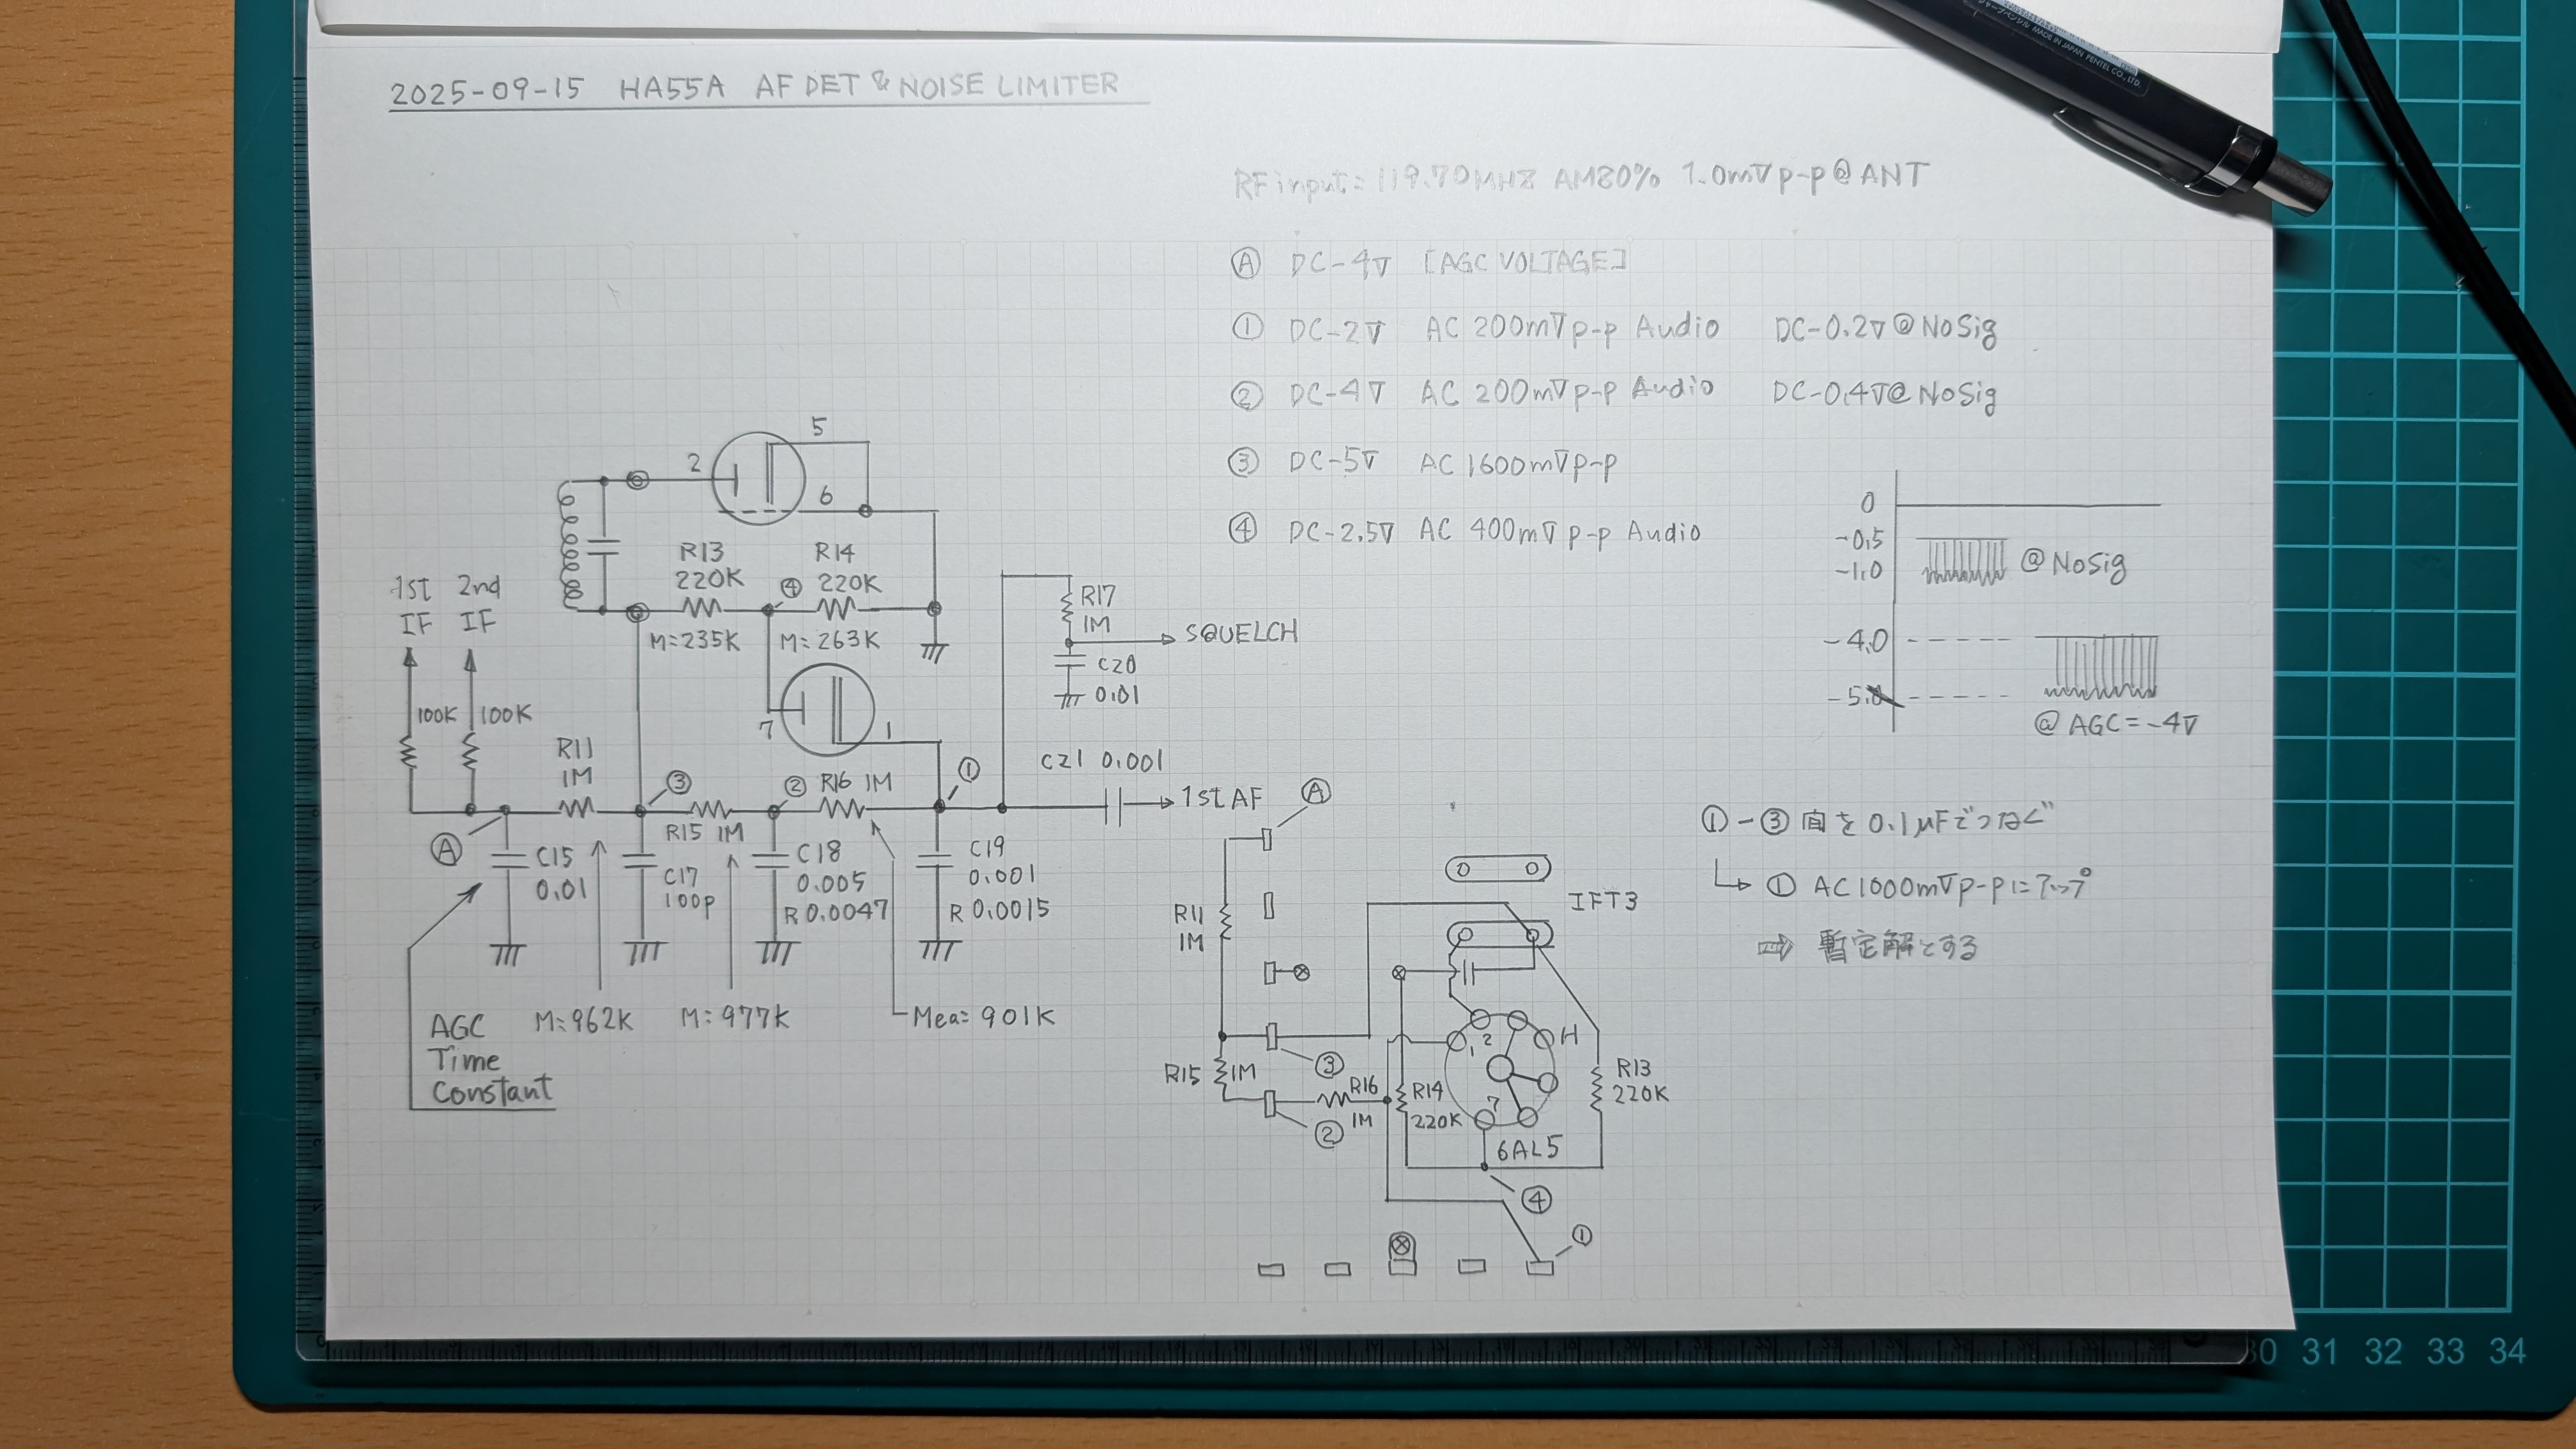 2025-09-15 HA55A AF DET & NOISE LIMITER
RF input = 119.70MHz AM80% 1.0mVp-p@ANT
Ⓐ DC-4V [AGC VOLTAGE]
① DC-2V AC 200mVp-p Audio DC-0.2V@NoSig
② DC-4V AC 200mVp-p Audio DC-0.4V@NoSig
③ DC-5V AC 1600mVp-p
④ DC-2.5V AC 400mVp-p Audio
0
-0.5
-1.0
@NoSig
-4.0
-5.0
@AGC=-4V
①-③間を0.1μFでつなぐ
① AC1000mVp-pにアップ
⇨ 暫定解とする
5
2
6
R13
220K
④
R14
220K
M=235K
M=263K
1st
IF
2nd
IF
100K
100K
7
1
R17
1M
SQUELCH
C20
0.01
R11
1M
③
②
R16 1M
①
C21 0.001
1st AF
R15 1M
Ⓐ
C15
0.01
C17
100p
C18
0.005
R 0.0047
C19
0.001
R 0.0015
AGC
Time
Constant
M=962K
M=977K
Mea=901K
Ⓐ
R11
1M
IFT3
1
2
H
③
R15
1M
R16
1M
②
R14
220K
7
R13
220K
6AL5
④
①
MADE IN JAPAN PENTEL CO., LTD.
30 31 32 33 34